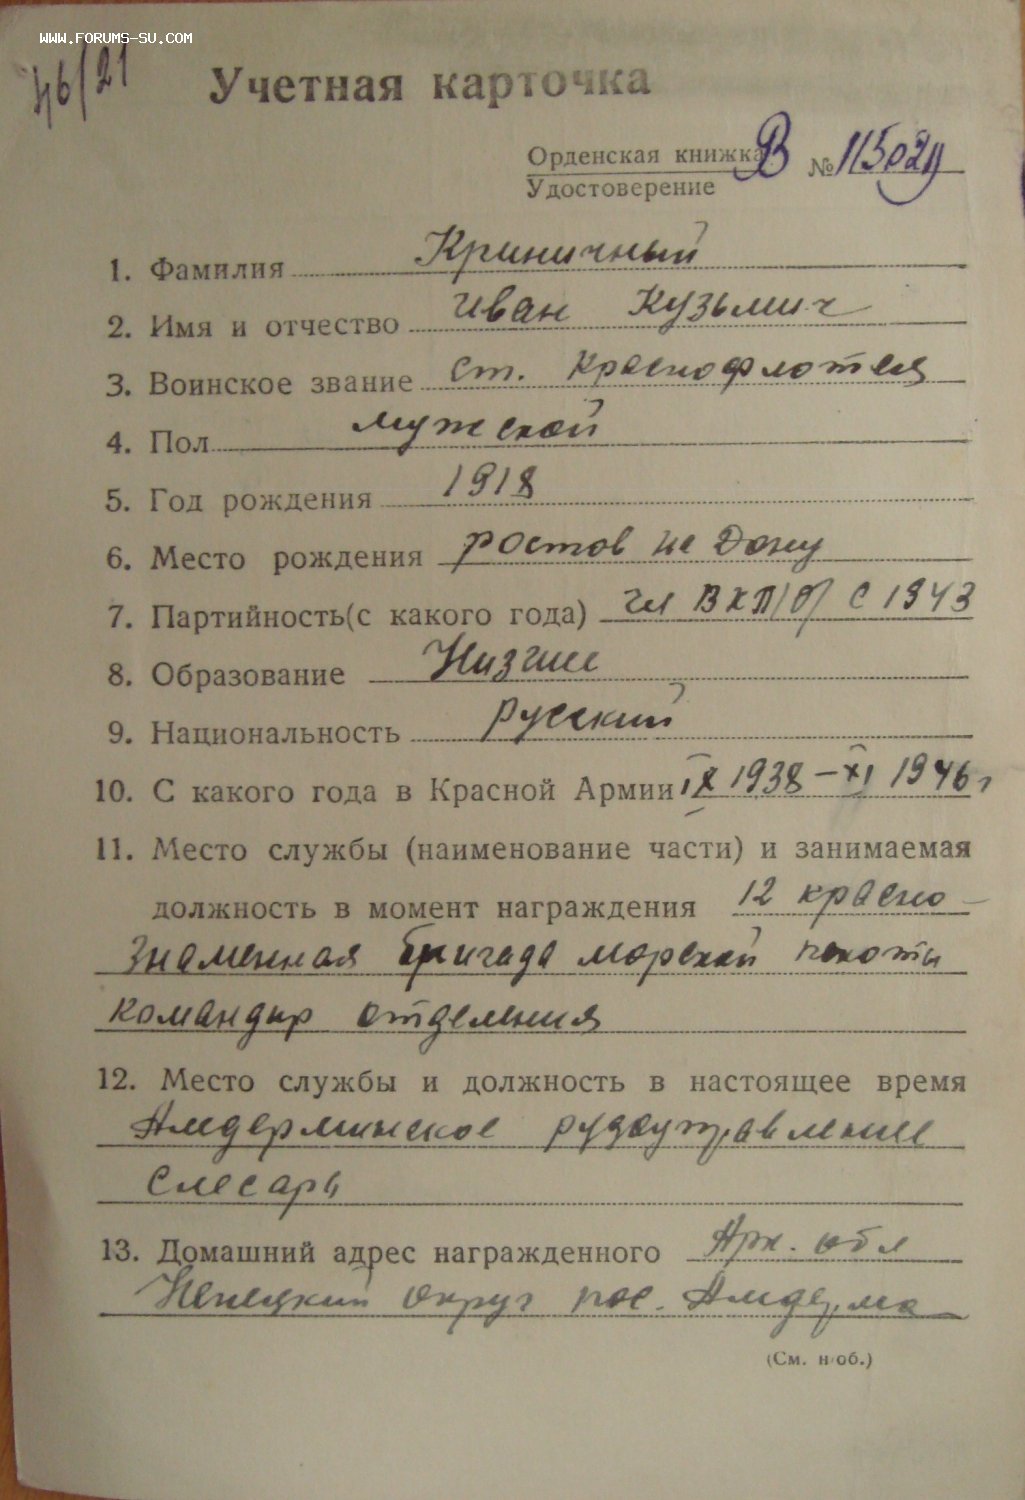 WWW.FORUMS-SU.COM
46/21
Учетная карточка
Орденская книжка В № 115029
Удостоверение
1. Фамилия Криничный
2. Имя и отчество Иван Кузьмич
3. Воинское звание ст. Краснофлотец
4. Пол мужской
5. Год рождения 1918
6. Место рождения Ростов на Дону
7. Партийность(с какого года) чл ВКП/б/ с 1943
8. Образование Низшее
9. Национальность Русский
10. С какого года в Красной Армии IX 1938 – XI 1946 г
11. Место службы (наименование части) и занимаемая
должность в момент награждения 12 красно-
знаменная бригада морской пехоты
командир отделения
12. Место службы и должность в настоящее время
Амдерминское рудоуправление
слесарь
13. Домашний адрес награжденного Арх. обл
Ненецкий округ пос. Амдерма
(См. н об.)